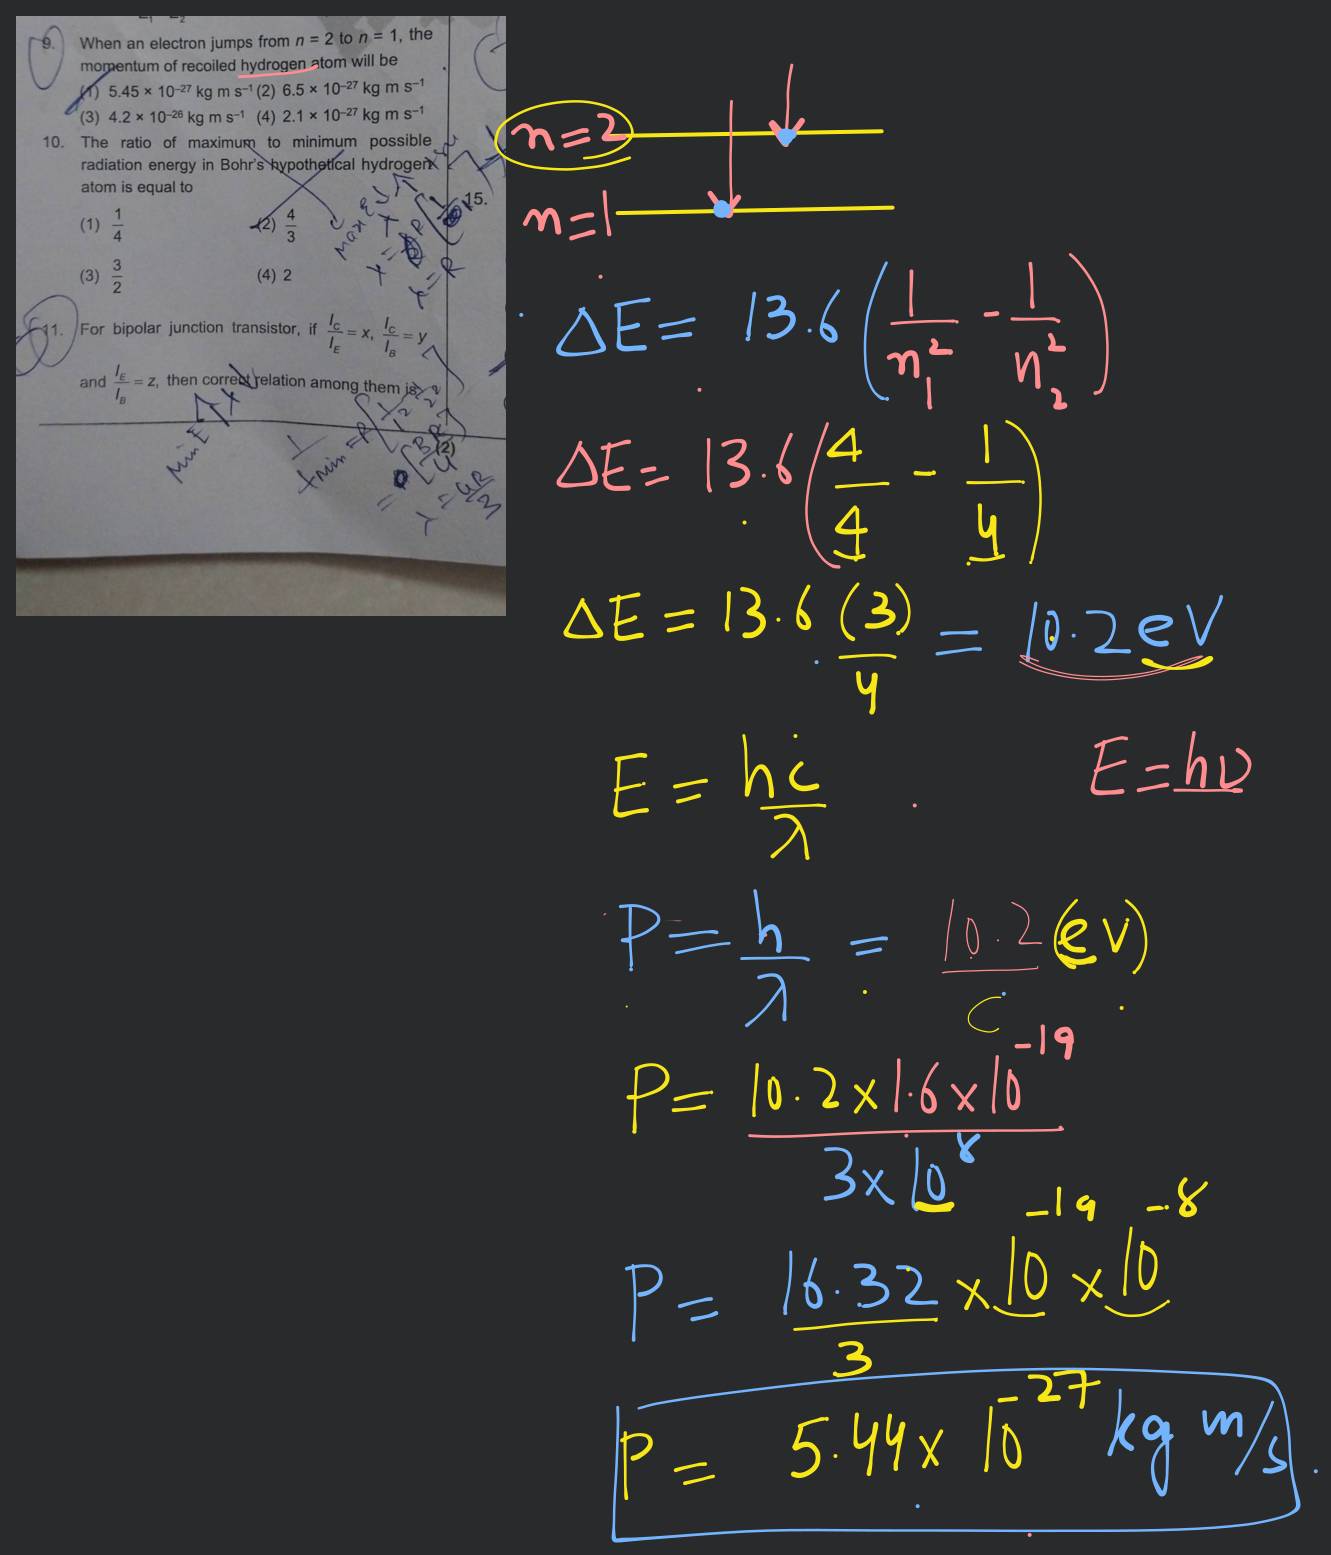 9. When an electron jumps from n = 2 to n = 1, the
momentum of recoiled hydrogen atom will be
(1) 5.45 × 10⁻²⁷ kg m s⁻¹ (2) 6.5 × 10⁻²⁷ kg m s⁻¹
(3) 4.2 × 10⁻²⁶ kg m s⁻¹ (4) 2.1 × 10⁻²⁷ kg m s⁻¹
10. The ratio of maximum to minimum possible
radiation energy in Bohr's hypothetical hydrogen
atom is equal to
15.
(1) 1/4 (2) 4/3
(3) 3/2 (4) 2
11. For bipolar junction transistor, if I_C/I_E = x, I_C/I_B = y
and I_E/I_B = z, then correct relation among them is
(2)
max E
min E
n=2
n=1
ΔE = 13.6 (1/n₁² - 1/n₂²)
ΔE = 13.6 (4/4 - 1/4)
ΔE = 13.6 (3)/4 = 10.2 eV
E = hc/λ E = hν
P = h/λ = 10.2/c (eV)
P = 10.2 × 1.6 × 10⁻¹⁹ / 3 × 10⁸
P = 16.32/3 × 10⁻¹⁹ × 10⁻⁸
P = 5.44 × 10⁻²⁷ kg m/s